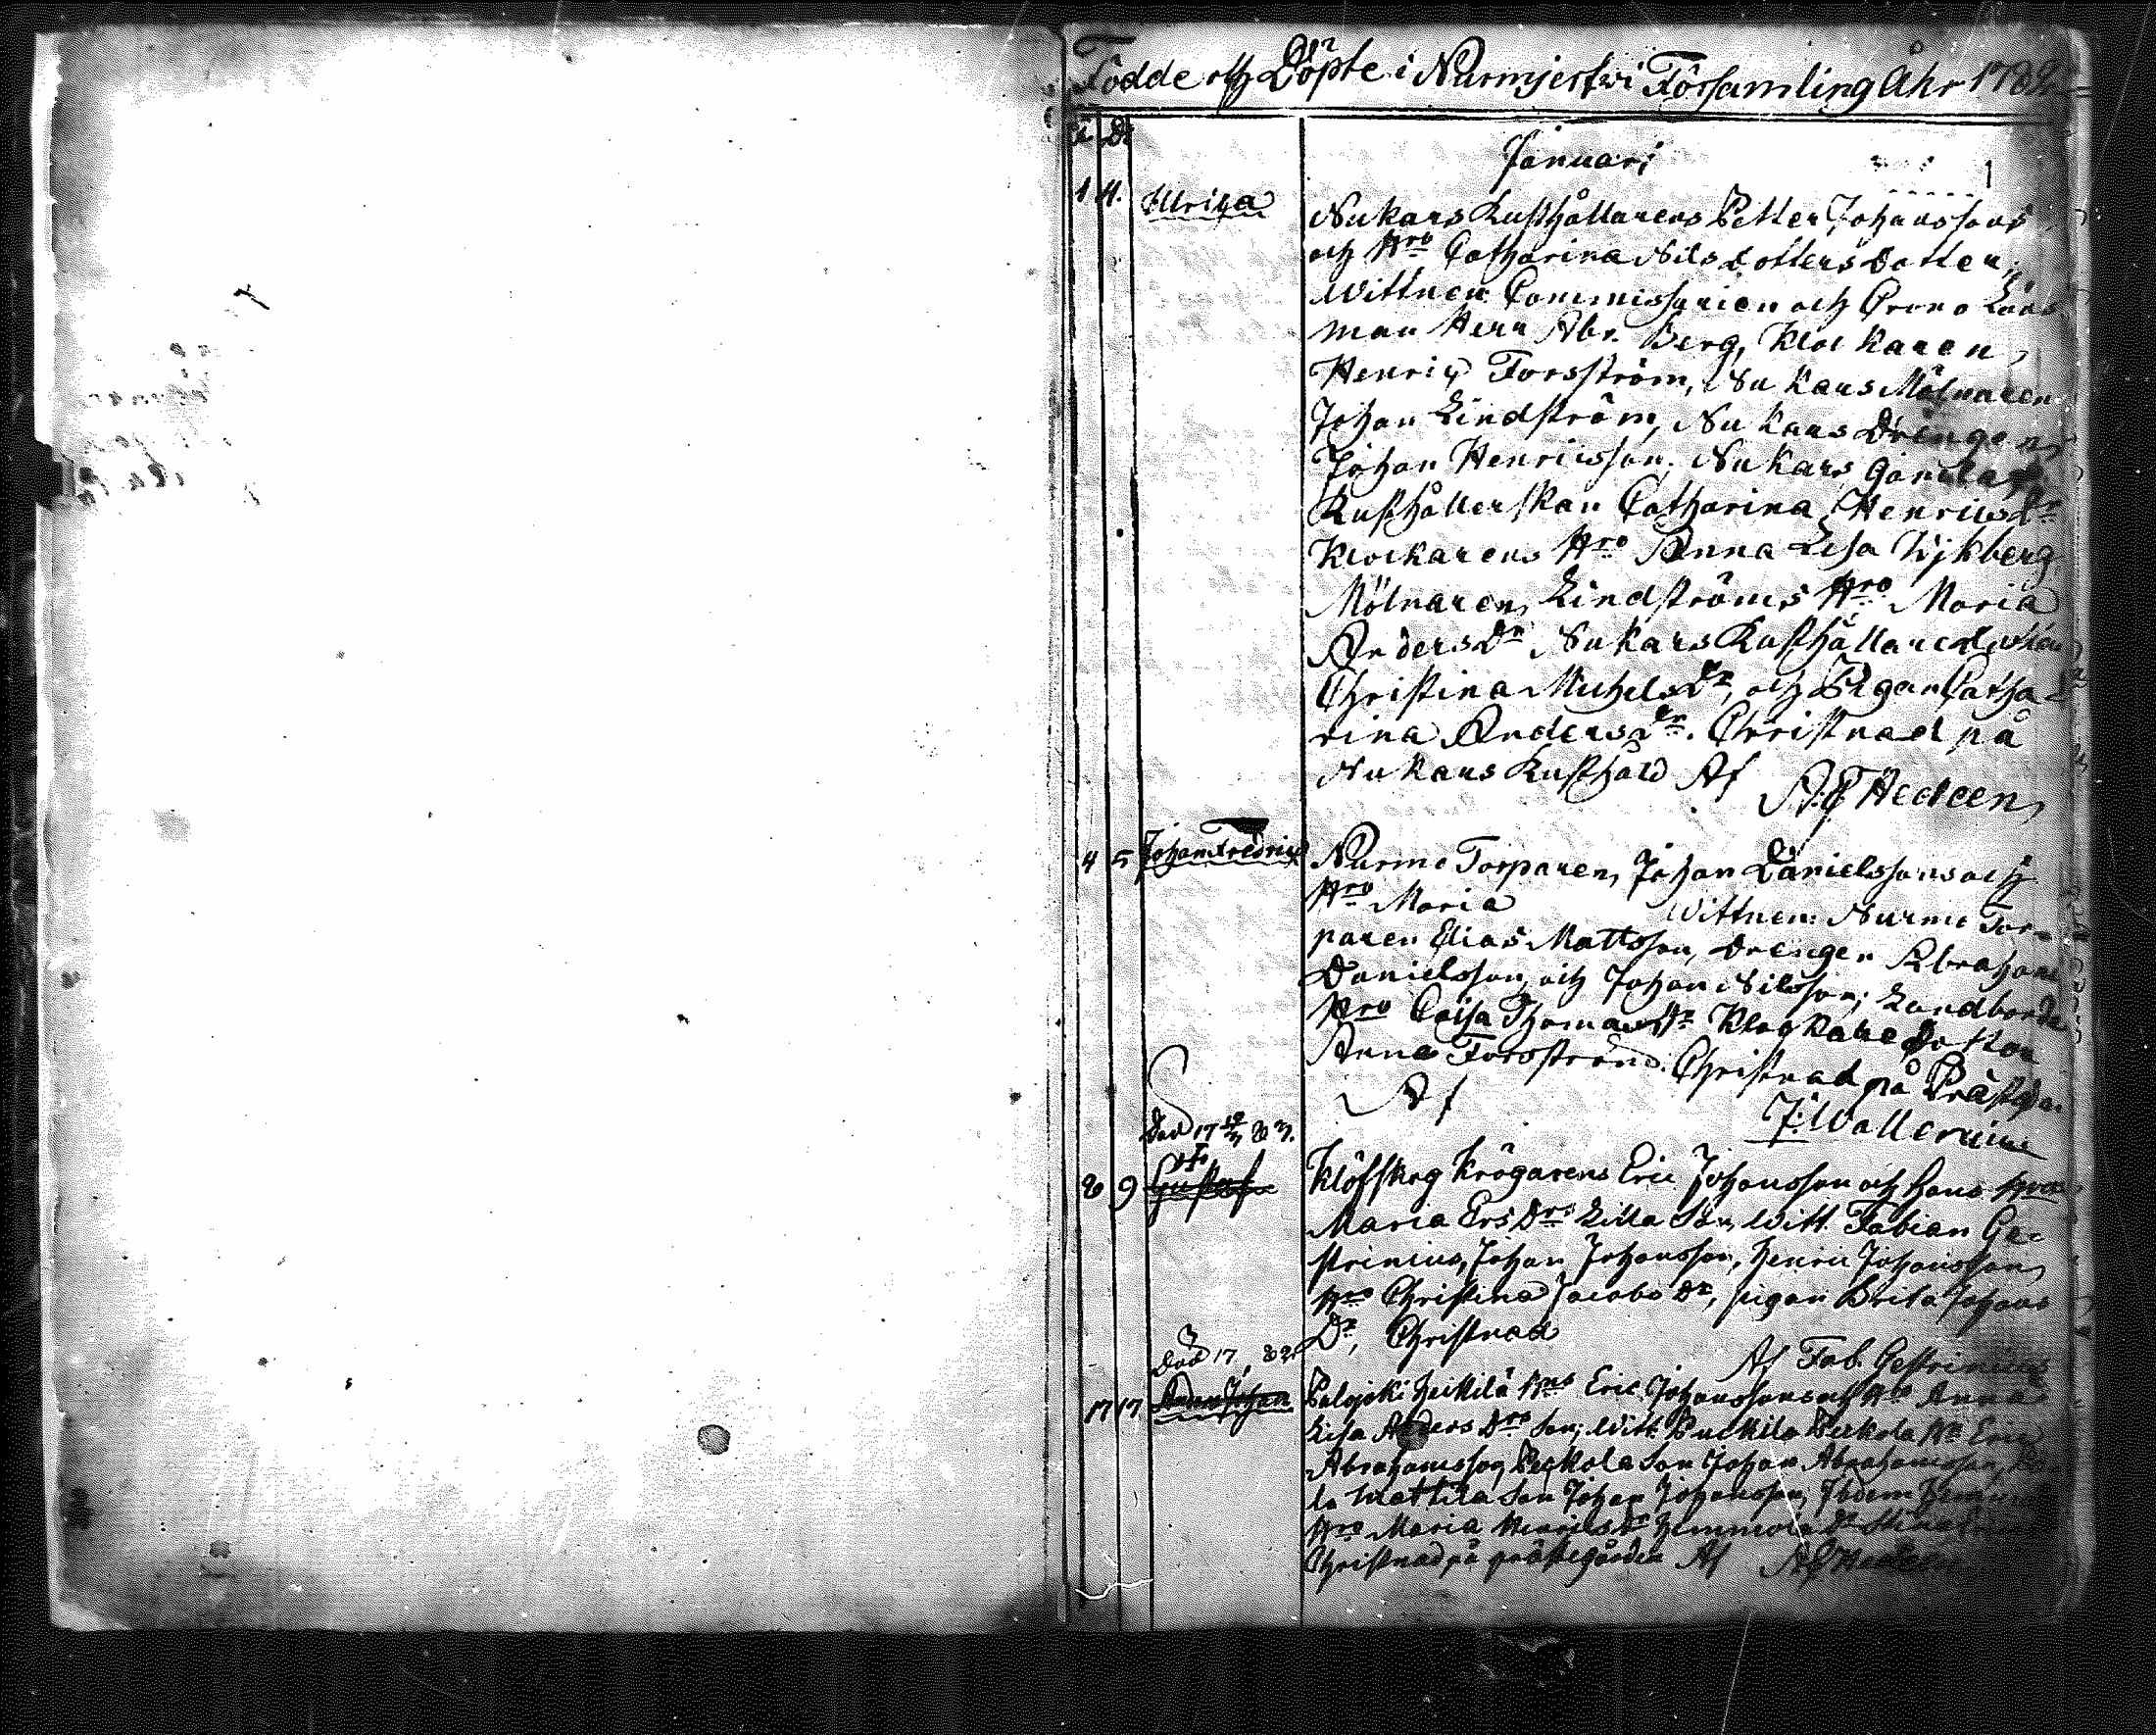 Födde och Döpte i Nurmjerfwi Församling Åhr 1782
Januari
1 4. Ulrica Nukars Rusthållarens Petter Johanssons
och Hro Catharina Nilsdotters dotter,
Wittnen Commissarien och Crono Läns
man Herr Abr. Berg, Klockaren
Henric Forsström, Nukars Mölnaren
Johan Lindström, Nukars Drengen
Johan Henricsson, Nukars gamla
Rusthållerskan Catharina Henrics Dr
Klockarens Hro Anna Lisa Wjkberg
Mölnaren Lindströms Hro Maria
Anders Dr Nukars Rusthållare
Christina Michels Dr, och Pigan Catha-
rina Anders Dr. Christnad på
Nukars Rusthåld Af
A: Hedeen
4 5 Johan Fredric Nurmo Torparen Johan Danielssons och
Hro Maria Wittnen Nurmo Tor-
paren Elias Mattsson, Drengen Abraham
Danielsson, och Johan Nilsson; Landbonde
Hro Caisa Thomas Dr Klockare Dotter
Anna Forsström. Christnad på Präst
Af
J: Wallenius
Död 17 83.
8 9 Gustaf Klöfskog Krögarens Eric Johansson och hans Hro
Maria Ers Drs Lilla Son, Witt. Fabian Ge-
strinius, Johan Johansson, Henric Johansson,
Hro Christina Jacobs Dr, pigan Brita Johans
Dr, Christnad
Af Fab. Gestrinius
Död 17 82.
17 17 Johan Palojoki Heikilä Eric Johanssons och Hro Anna
Lisa Anders Drs Son; Witt. Puckila Peckola Eric
Abrahamsson, Peckola Son Johan Abrahamsson,
la Mattila Son Johan Johansson, Ibdem
Hro Maria Henrics Dr
Christnad på prästegården Af